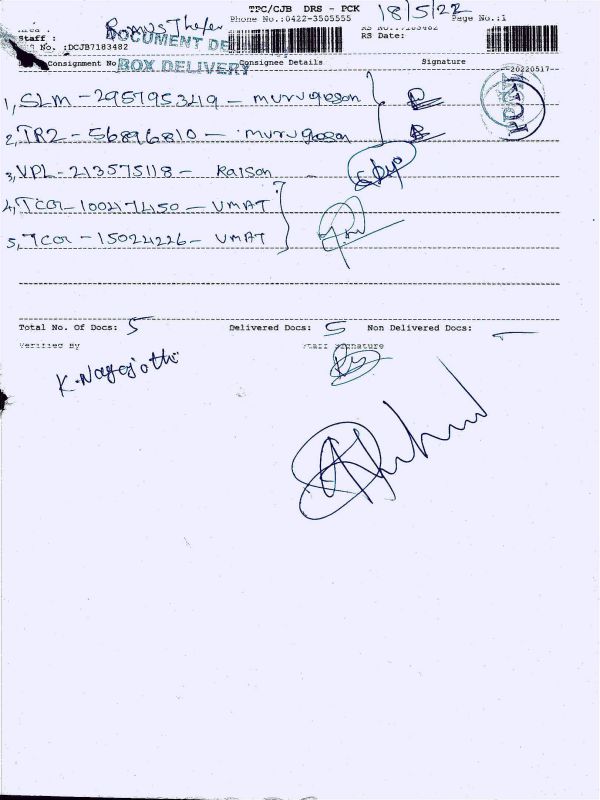 TPC/CJB DRS - PCK 18/5/22
Phone No.:0422-3505555 Page No.:1
Staff :
RS Date:
No. :DCJB7183482
DOCUMENT DE
Consignment No BOX DELIVERY Consignee Details Signature
20220517
1, SLM - 295795349 - murugesan
2, TR2 - 56896810 - murugesan
3, VPL - 213575118 - Kaison
4, TCR - 100474450 - UMAT
5, TCR - 15024226 - UMAT
Total No. Of Docs: 5 Delivered Docs: 5 Non Delivered Docs: -
Verified By Staff Signature
K. Nagajothi